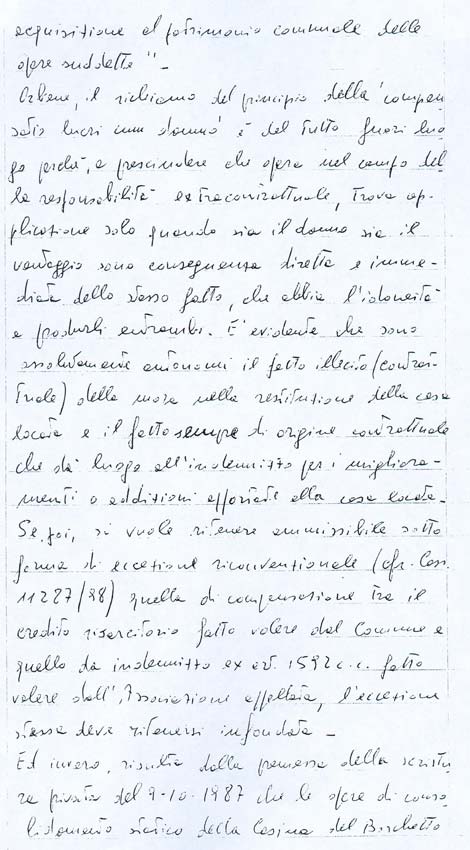 acquisizione al patrimonio comunale delle
opere suddette" -
Orbene, il richiamo del principio della 'compen
satio lucri cum damno' è del tutto fuori luo
go perché, a prescindere che opera nel campo del
la responsabilità extracontrattuale, trova ap-
plicazione solo quando sia il danno sia il
vantaggio sono conseguenza diretta e imme-
diata dello stesso fatto, che abbia l'idoneità
a produrli entrambi. È evidente che sono
assolutamente autonomi il fatto illecito (contrat-
tuale) della mora nella restituzione della cosa
locata e il fatto sempre di origine contrattuale
che dà luogo all'indennizzo per i migliora-
menti o addizioni apportate alla cosa locata.
Se, poi, si vuole ritenere ammissibile sotto
forma di eccezione riconvenzionale (cfr. Cass.
11287/98) quella di compensazione tra il
credito risarcitorio fatto valere dal Comune e
quello da indennizzo ex art. 1592 c.c. fatto
valere dall'Associazione appellata, l'eccezione
stessa deve ritenersi infondata -
Ed invero, risulta dalla premessa della scrittu
ra privata del 9-10-1987 che le opere di conso
lidamento statico della Casina del Boschetto